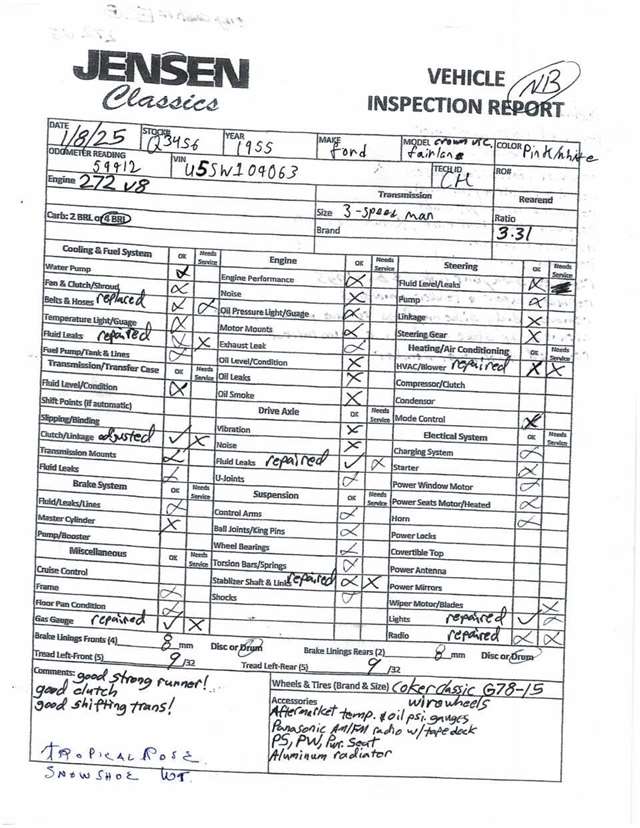 JENSEN
Classics
VEHICLE
INSPECTION REPORT
NB
DATE 1/8/25 STOCK# Q3456 YEAR 1955 MAKE Ford MODEL crown vic. fairlane COLOR Pink/white
ODOMETER READING 59412 VIN U5SW109063 TECH ID CH RO#
Engine 272 V8 Transmission Rearend
Carb: 2 BRL or 4 BRL Size 3-speed man Ratio 3.31
Brand
Cooling & Fuel System OK Needs Service
Water Pump
Fan & Clutch/Shroud
Belts & Hoses replaced
Temperature Light/Guage
Fluid Leaks repaired
Fuel Pump/Tank & Lines
Transmission/Transfer Case OK Needs Service
Fluid Level/Condition
Shift Points (if automatic)
Slipping/Binding
Clutch/Linkage adjusted
Transmission Mounts
Fluid Leaks
Brake System OK Needs Service
Fluid/Leaks/Lines
Master Cylinder
Pump/Booster
Miscellaneous OK Needs Service
Cruise Control
Frame
Floor Pan Condition
Gas Gauge repaired
Engine OK Needs Service
Engine Performance
Noise
Oil Pressure Light/Guage
Motor Mounts
Exhaust Leak
Oil Level/Condition
Oil Leaks
Oil Smoke
Drive Axle OK Needs Service
Vibration
Noise
Fluid Leaks repaired
U-Joints
Suspension OK Needs Service
Control Arms
Ball Joints/King Pins
Wheel Bearings
Torsion Bars/Springs
Stablizer Shaft & Links repaired
Shocks
Steering OK Needs Service
Fluid Level/Leaks
Pump
Linkage
Steering Gear
Heating/Air Conditioning OK Needs Service
HVAC/Blower repaired
Compressor/Clutch
Condensor
Mode Control
Electrical System OK Needs Service
Charging System
Starter
Power Window Motor
Power Seats Motor/Heated
Horn
Power Locks
Covertible Top
Power Antenna
Power Mirrors
Wiper Motor/Blades
Lights repaired
Radio repaired
Brake Linings Fronts (4) 8 mm Disc or Drum Brake Linings Rears (2) 8 mm Disc or Drum
Tread Left-Front (5) 9 /32 Tread Left-Rear (5) 9 /32
Comments: good strong runner!
good clutch
good shifting trans!
TROPICAL ROSE
SNOWSHOE WT.
Wheels & Tires (Brand & Size) Coker classic G78-15
Accessories wire wheels
Aftermarket temp. & oil psi. gauges
Panasonic AM/FM radio w/tape deck
PS, PW, Pwr. Seat
Aluminum radiator